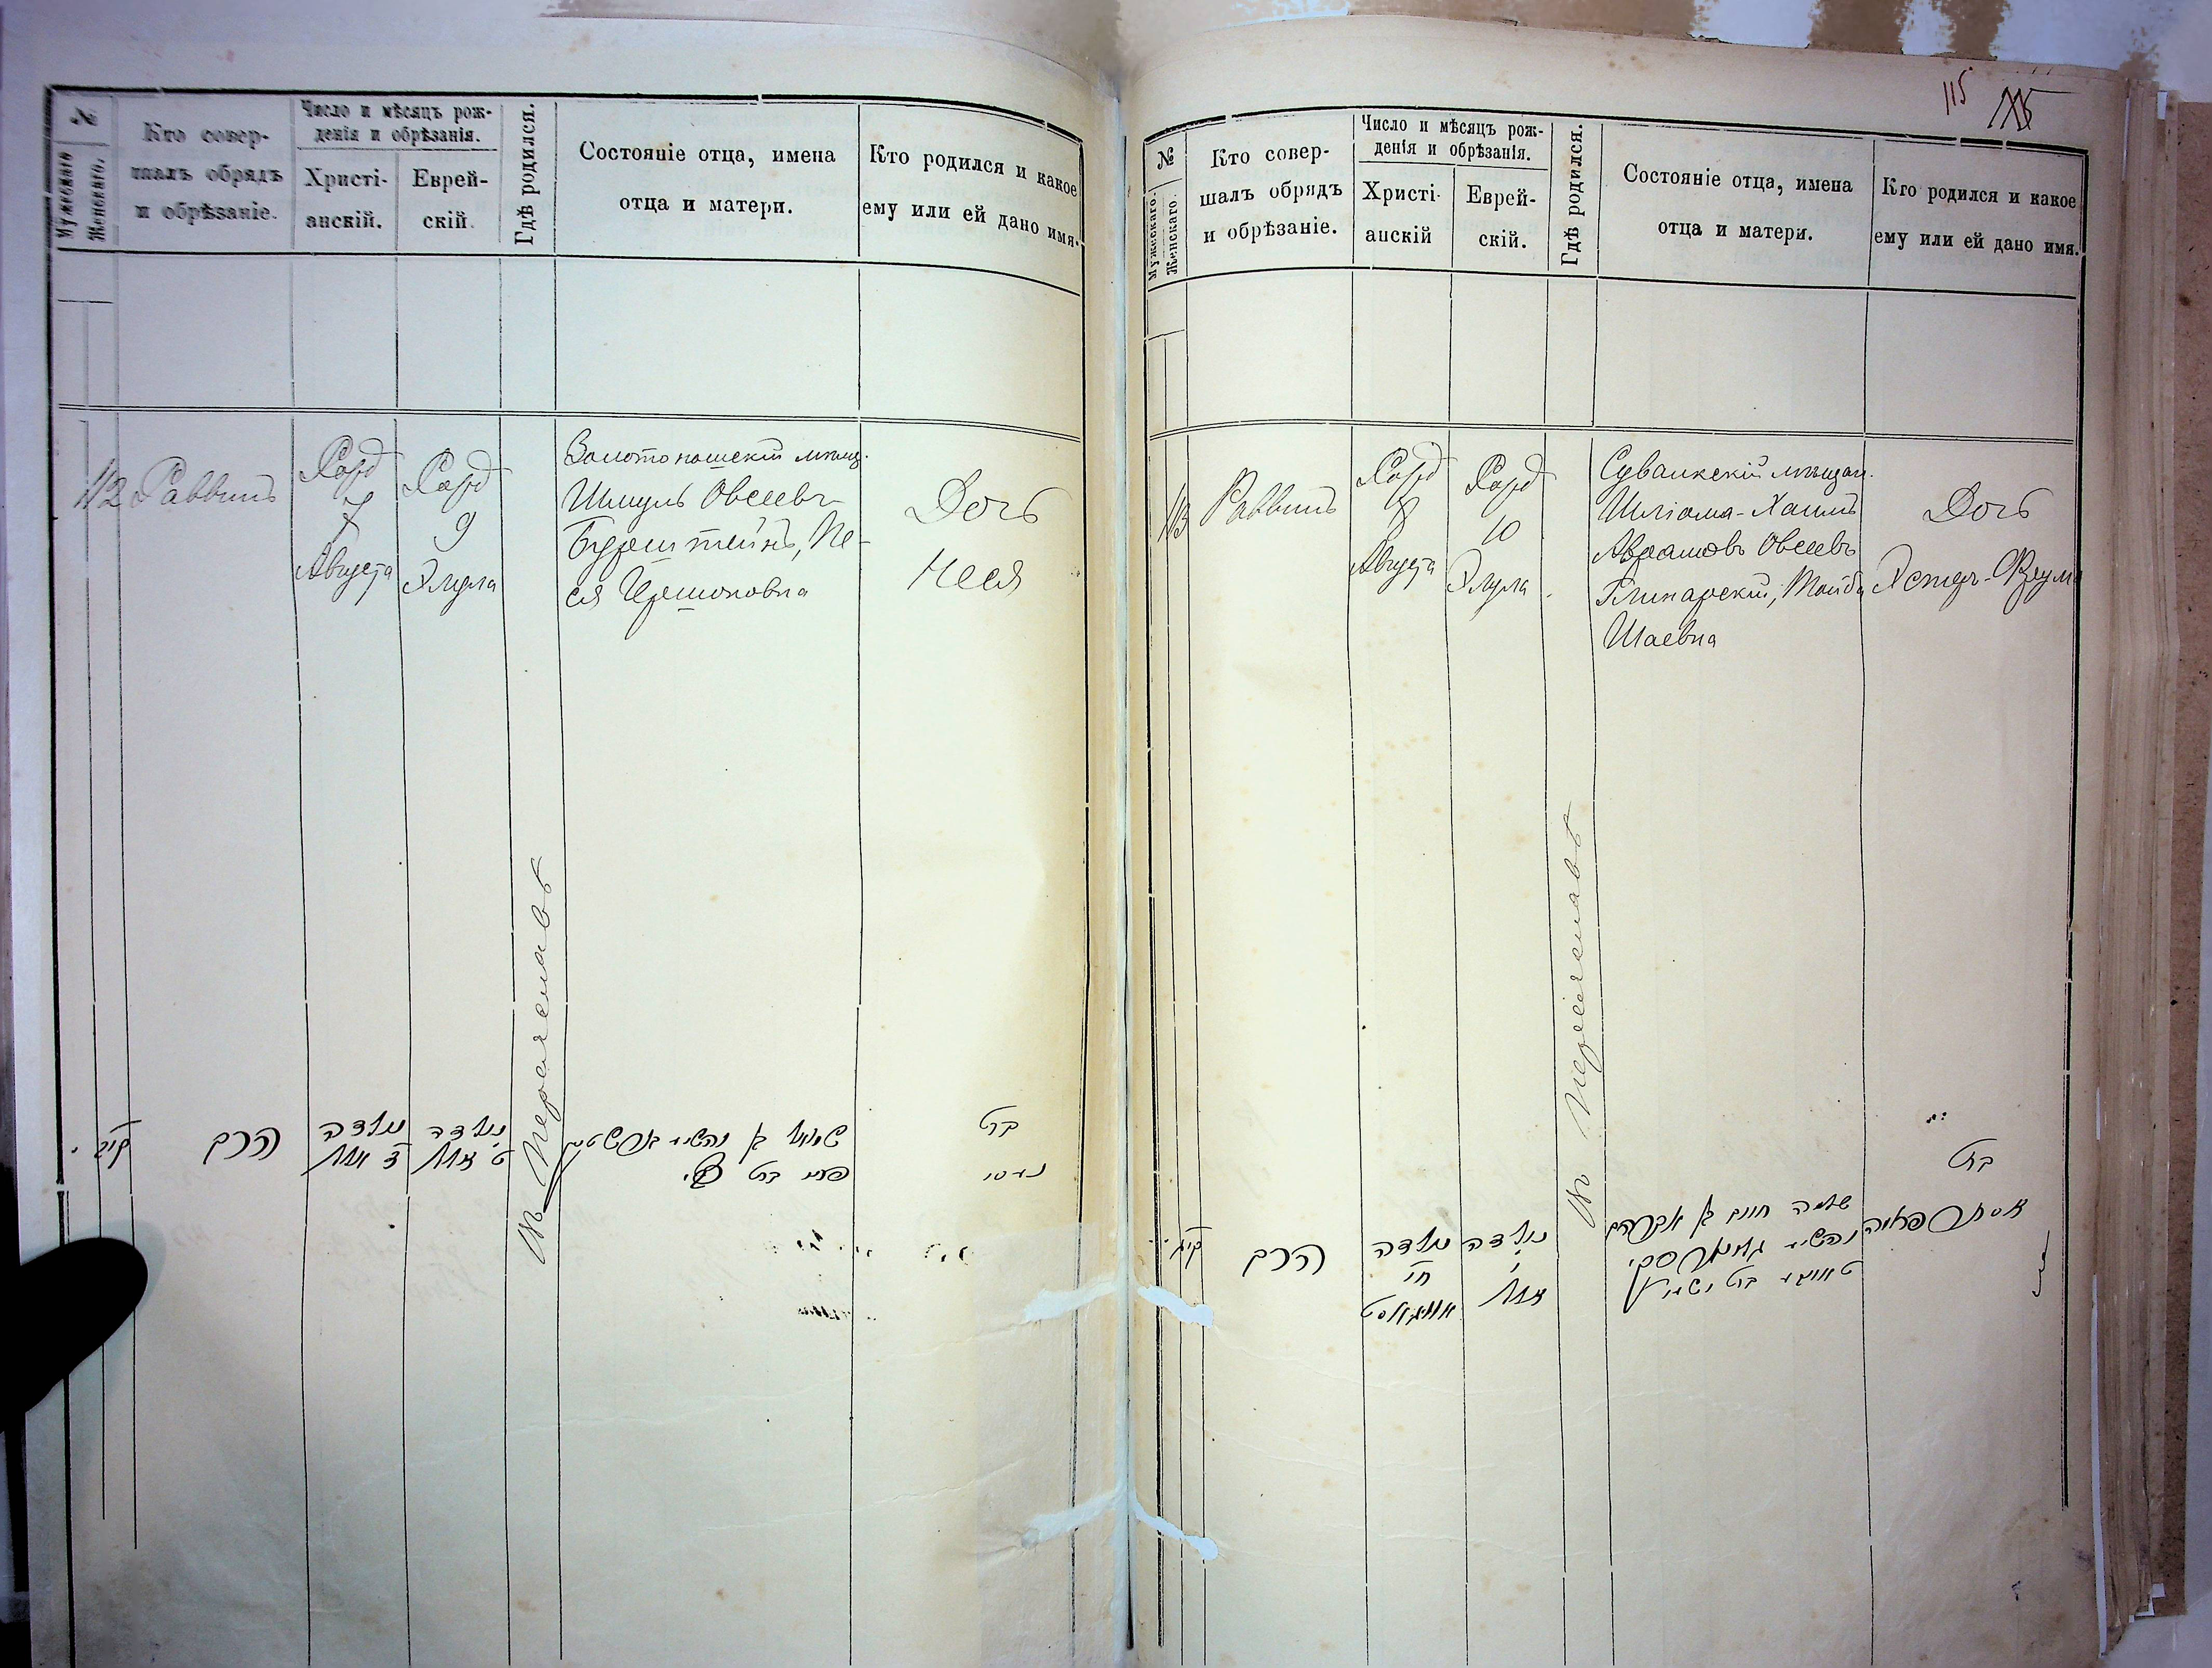 №
Мужескаго
Женскаго.
Кто совер-
шалъ обрядъ
и обрѣзаніе.
Число и мѣсяцъ рож-
денія и обрѣзанія.
Христі-
анскій.
Еврей-
скій.
Гдѣ родился.
Состояніе отца, имена
отца и матери.
Кто родился и какое
ему или ей дано имя.
112
Раввинъ
Рожд
7
Августа
Рожд
9
Элула
Въ Переяславѣ
Золотоношскій мѣщ.
Шмуль Овсеевъ
Бурштейнъ, Пе-
ся Гершоновна
Дочь
Неся
קיב
הרב
נולדה
נולדה
ט אלול
בת
115
№
Мужескаго.
Женскаго.
Кто совер-
шалъ обрядъ
и обрѣзаніе.
Число и мѣсяцъ рож-
денія и обрѣзанія.
Христі-
анскій
Еврей-
скій.
Гдѣ родился.
Состояніе отца, имена
отца и матери.
Кто родился и какое
ему или ей дано имя.
113
Раввинъ
Рожд
8
Августа
Рожд
10
Элула
Въ Переяславѣ
Сувалкскій мѣщан.
Шліома-Хаимъ
Абрамовъ Овсеевъ
Шаевна
Дочь
Эстеръ-Фрума
קיג
הרב
נולדה
נולדה
י
אלול
שלמה חיים בן אברהם
בת